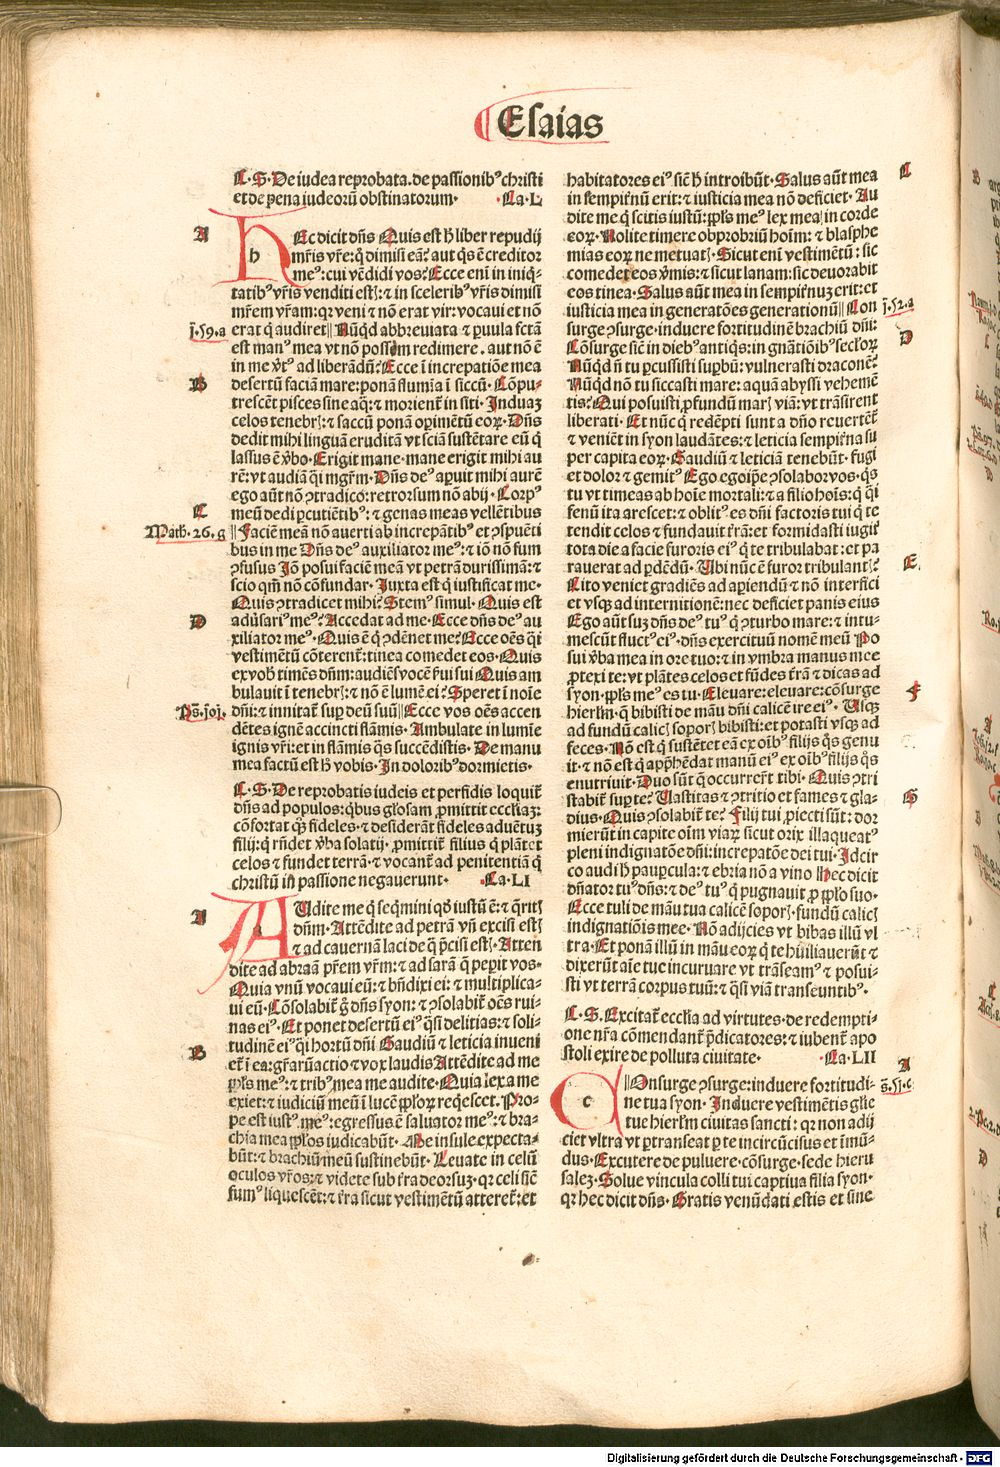 Esaias
C. S. De iudea reprobata. de passionibꝰ christi
et de pena iudeorũ obstinatorum. Ca. L
A
h
Ec dicit dñs Quis est ħ liber repudij
mr̃is vr̃e: q̃ dimisi eã? aut q̃s ẽ creditor
meꝰ: cui vẽdidi vos? Ecce eni in iniq̃-
tatibꝰ vr̃is venditi estꝭ: ⁊ in scelerib⁹ vr̃is dimisi
mr̃em vr̃am: qꝛ veni ⁊ nõ erat vir: vocaui et nõ
j. 59. a
erat q̃ audiret || Nũqd abbreuiata ⁊ ꝑuula fctã
est manꝰ mea vt nõ possem redimere. aut nõ ẽ
in me v̓tꝰ ad liberãdũ? Ecce ĩ increpatiõe mea
B
desertũ faciã mare: ponã flumĩa ĩ siccũ. Cõpu-
trescẽt pisces sine aq̃: ⁊ morient̃ in siti. Induaꝫ
celos tenebrꝭ: ⁊ saccũ ponã oꝑimẽtũ eoꝝ. Dñs
dedit mihi linguã eruditã vt sciã sustẽtare eũ q̃
lassus ẽ v̓bo. Erigit mane. mane erigit mihi au
rẽ: vt audiã q̃i mgr̃m. Dñs deꝰ aꝑuit mihi aurẽ
ego aũt nõ ꝯtradico: retrorsum nõ abij. Corpꝰ
C
meũ dedi ꝑcutiẽtibꝰ: ⁊ genas meas vellẽtibus
Math. 26. g
|| Faciẽ meã nõ auerti ab increpãtibꝰ et ꝯspuẽti
bus in me Dñs deꝰ auxiliator meꝰ: ⁊ iõ nõ sum
ꝯfusus Iõ posui faciẽ meã vt petrã durissimã: ⁊
scio qm̃ nõ cõfundar. Juxta est q̃ iustificat me.
Quis ꝯtradicet mihi? Stemꝰ simul. Quis est
D
adũsariꝰ meꝰ? Accedat ad me. Ecce dñs deꝰ au
xiliator meꝰ. Quis ẽ q̃ ꝯdẽnet me? Ecce oẽs q̃i
vestimẽtũ cõterent̃: tinea comedet eos. Quis
ex vob̃ timẽs dñm: audiẽs vocẽ f̃ui sui Quis am
bulauit ĩ tenebrꝭ: ⁊ nõ ẽ lumẽ ei? Speret ĩ noĩe
Ps̃. joj.
dñi: ⁊ innitat̃ suꝑ deũ suũ || Ecce vos oẽs accen
dẽtes ignẽ accincti flãmis. Ambulate in lumĩe
ignis vr̃i: et in flãmis q̃s succẽdistis. De manu
mea factũ est ħ vobis. In doloribꝰ dormietis.
C. S. De reprobatis iudeis et perfidis loquit̃
dñs ad populos: q̃bus gl̃osam ꝓmittit eccl̃iaꝫ:
cõfortat q̃sꝫ fideles. ⁊ desiderãt fideles aduẽtuꝫ
filij: q̃ rñdet v̓ba solatij. ꝓmittit̃ filius q̃ plãtet
celos ⁊ fundet terrã. ⁊ vocant̃ ad penitentiã q̃
christũ in passione negauerunt. Ca. LI
A
Udite me q̃ seq̃mini qð iustũ ẽ: ⁊ q̃ritꝭ
dñm. Attẽdite ad petrã vñ excisi estꝭ
⁊ ad cauernã laci de q̃ p̃cisi estꝭ. Atten
dite ad abraã pr̃em vr̃m: ⁊ ad sarã q̃ peꝑit vos.
Quia vnũ vocaui eũ: ⁊ bñdixi ei: ⁊ multiplica-
ui eũ. Cõsolabit̃ g̃ dñs syon: ⁊ ꝯsolabit̃ oẽs rui-
nas eiꝰ. Et ponet desertũ eiꝰ q̃si delitias: ⁊ soli-
tudinẽ eiꝰ q̃i hortũ dñi Gaudiũ ⁊ leticia inueni
B
et̃ ĩ ea: gr̃aꝝ actio ⁊ vox laudis Attẽdite ad me
ppl̃s meꝰ: ⁊ tribꝰ mea me audite. Quia lex a me
exiet: ⁊ iudiciũ meũ ĩ lucẽ ppl̃oꝝ req̃escet. Pro-
pe est iustꝰ meꝰ: egressus ẽ saluator meꝰ: ⁊ bra-
chia mea ppl̃os iudicabũt. Me insule expecta-
bũt: ⁊ brachiũ meũ sustinebũt. Leuate in celũ
oculos vr̃os: ⁊ videte sub t̃ra deorsuꝫ. qꝛ celi sic̃
fumꝰ liquescẽt: ⁊ t̃ra sicut vestimẽtũ atteret̃: et
C
habitatores eiꝰ sic̃ ħ introibũt. Salus aũt mea
in sempit̃nũ erit: ⁊ iusticia mea nõ deficiet. Au
dite me q̃ scitis iustũ: ppl̃s meꝰ lex mea ĩ corde
eoꝝ. Nolite timere obprobriũ hoĩm: ⁊ blasphe
mias eoꝝ ne metuatꝭ. Sicut eni vestimẽtũ: sic
comedet eos v̓mis: ⁊ sicut lanam: sic deuorabit
eos tinea. Salus aũt mea in sempit̃nuꝫ erit: et
iusticia mea in generatões generationũ || Con j. 52. a
surge ꝯsurge. induere fortitudinẽ brachiũ dñi: D
Cõsurge sic̃ in diebꝰ antiq̃s: in gñatiõibꝰ sec̃loꝝ
Nũqd ñ tu ꝑcussisti suꝑbũ: vulnerasti draconẽ?
Nũqd nõ tu siccasti mare: aquã abyssi vehemẽ
tis? Qui posuisti ꝓfundũ marꝭ viã: vt trãsirent
liberati. Et nũc q̃ redẽpti sunt a dño reuertẽt̃
⁊ veniẽt in syon laudãtes: ⁊ leticia sempit̃na su
per capita eoꝝ. Gaudiũ ⁊ leticiã tenebũt. fugi
et dolor ⁊ gemitꝰ Ego ego ip̃e ꝯsolabor vos. q̃s
tu vt timeas ab hoĩe mortali: ⁊ a filio hoĩs: q̃ q̃i
fenũ ita arescet: ⁊ oblitꝰ es dñi factoris tui q̃ te
tendit celos ⁊ fundauit t̃rã: et formidasti iugit̃
tota die a facie furoris eiꝰ q̃ te tribulabat: et pa
rauerat ad ꝑdẽdũ. Ubi nũc ẽ furor tribulantꝭ? E
Cito veniet gradiẽs ad aꝑiendũ ⁊ nõ interfici
et vsqꝫ ad internitionẽ: nec deficiet panis eius
Ego aũt suꝫ dñs deꝰ tuꝰ q̃ ꝯturbo mare: ⁊ intu-
mescũt fluctꝰ eiꝰ. dñs exercituũ nomẽ meũ Po
sui v̓ba mea in ore tuo: ⁊ in vmbra manus mee
ꝓtexi te: vt plãtes celos et fũdes t̃rã ⁊ dicas ad
syon. ppl̃s meꝰ es tu. Eleuare: eleuare: cõsurge F
hierl̃m. q̃ bibisti de mãu dñi calicẽ ire eiꝰ. Usqꝫ
ad fundũ calicꝭ soporꝭ bibisti: et potasti vsqꝫ ad
feces. Nõ est q̃ sustẽtet eã ex oĩbꝰ filijs q̃s genu
it. ⁊ nõ est q̃ app̃hẽdat manũ eiꝰ ex oĩbꝰ filijs q̃s
enutriuit. Duo sũt q̃ occurrer̃t tibi. Quis ꝯtri
stabit̃ suꝑ te? Uastitas ⁊ ꝯtritio et fames ⁊ gla- G
dius. Quis ꝯsolabit̃ te? Filij tui ꝓiecti sũt: dor
mierũt in capite oĩm viaꝝ sicut orix illaqueatꝰ
pleni indignatõe dñi: increpatõe dei tui. Idcir
co audi ħ paupcula: ⁊ ebria nõ a vino || Hec dicit
dñator tuꝰ dñs: ⁊ deꝰ tuꝰ q̃ pugnauit ꝓ ppl̃o suo.
Ecce tuli de mãu tua calicẽ soporꝭ. fundũ calicꝭ
indignatiõis mee. Nõ adijcies vt bibas illũ vl
tra. Et ponã illũ in mãu eoꝝ q̃ te hũiliauerũt ⁊
dixerũt aĩe tue incuruare vt trãseamꝰ ⁊ posui-
sti vt terrã corpus tuũ: ⁊ q̃si viã transeuntibꝰ.
C. S. Excitat̃ eccl̃ia ad virtutes. de redempti-
one nr̃a cõmendant̃ p̃dicatores: ⁊ iubent̃ apo
stoli exire de polluta ciuitate. Ca. LII
A
c
|| Onsurge ꝯsurge: induere fortitudi- s̃. 51. c
ne tua syon. Induere vestimẽtis gl̃ie
tue hierl̃m ciuitas sancti: qꝛ non adij
ciet vltra vt ꝑtranseat ꝑ te incircũcisus et ĩmũ-
dus. Excutere de puluere. cõsurge. sede hieru
salez. Solue vincula colli tui captiua filia syon.
qꝛ hec dicit dñs. Gratis venũdati estis et sine
Digitalisierung gefördert durch die Deutsche Forschungsgemeinschaft - DFG